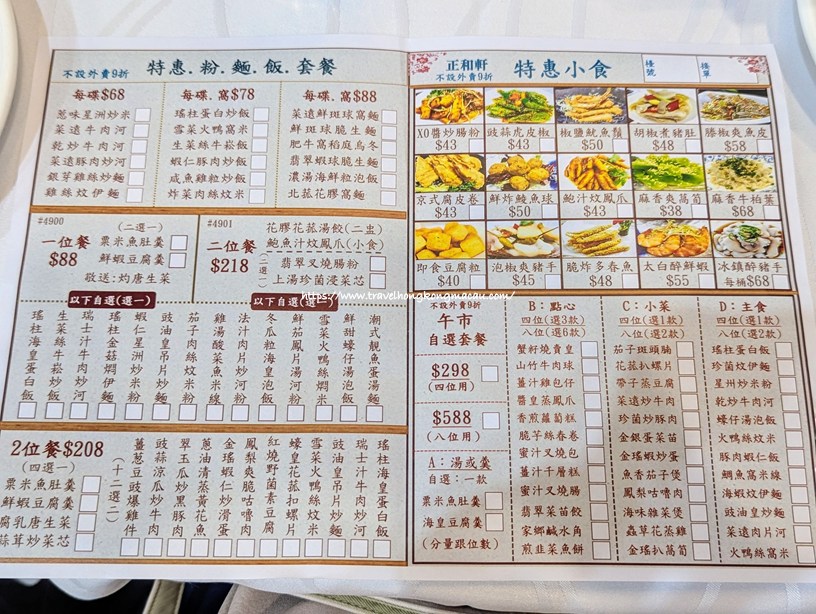 不設外賣9折 特惠.粉.麵.飯.套餐
每碟$68
蔥味星洲炒米
菜遠牛肉河
乾炒牛肉河
菜遠豚肉炒河
銀芽雞絲炒麵
雞絲炆伊麵
每碟.窩$78
瑤柱蛋白炒飯
雪菜火鴨窩米
生菜絲牛崧飯
蝦仁豚肉炒飯
咸魚雞粒炒飯
炸菜肉絲炆米
每碟.窩$88
菜遠鮮斑球窩麵
鮮斑球脆生麵
肥牛窩稻庭烏冬
翡翠蝦球脆生麵
濃湯海鮮粒泡飯
北菇花膠窩麵
#4900
一位餐
$88
(二選一)
粟米魚肚羹
鮮蝦豆腐羹
敬送:灼唐生菜
#4901
二位餐
$218
花膠花菇湯餃(二隻)
鮑魚汁炆鳳爪(小食)
(二選一)
翡翠叉燒腸粉
上湯珍菌浸菜芯
https://www.travelhongkongmacau.com/
以下自選(選一)
瑤柱海皇蛋白炒飯
生菜絲牛崧炒飯
瑞士汁牛肉炒河
豉油皇
以下自選(選一)
雞湯酸菜魚米線
法式汁肉粒炒飯
冬瓜粒海皇湯泡飯
雪菜火鴨絲燜米
鮮甜蠔仔湯泡飯
潮式靚魚蛋湯麵
2位餐$208
(四選一)
粟米魚肚羹
鮮蝦豆腐羹
腐乳唐生菜
蒜茸炒菜芯
(十二選二)
薑蔥豆豉爆雞件
豉蒜涼瓜炒牛肉
翠玉瓜炒黑豚肉
蔥油清蒸黃花魚
金瑤蝦仁炒滑蛋
鳳梨脆皮咕嚕肉
紅燒野菌素豆腐
蠔皇花菇扣螺片
雪菜火鴨絲炆米
豉油皇吊片炒麵
瑞士汁牛肉炒河
瑤柱海皇蛋白飯
正和軒
不設外賣9折
特惠小食
檯號
接單
XO醬炒腸粉
$43
豉蒜虎皮椒
$43
椒鹽魷魚鬚
$50
胡椒煮豬肚
$48
滕椒爽魚皮
$58
京式腐皮卷
$43
鮮炸鯪魚球
$50
鮑汁炆鳳爪
$43
麻香爽萵筍
$38
麻香牛柏葉
$68
即食豆腐粒
$40
泡椒爽豬手
$45
脆炸多春魚
$48
太白醉鮮蝦
$55
冰鎮醉豬手
每桶$68
不設外賣9折
午市
自選套餐
$298
(四位用)
$588
(八位用)
A:湯或羹
自選:一款
粟米魚肚羹
海皇豆腐羹
(分量跟位數)
B:點心
四位(選3款)
八位(選6款)
蟹籽燒賣皇
山竹牛肉球
薑汁雞包仔
醬皇蒸鳳爪
香煎蘿蔔糕
脆芋絲春卷
蜜汁叉燒包
薑汁千層糕
蜜汁叉燒腸
翡翠菜苗餃
家鄉鹹水角
煎韭菜魚餅
C:小菜
四位(選1款)
八位(選2款)
茄子斑頭腩
花菇扒螺片
帶子蒸豆腐
菜遠炒牛肉
珍菌炒豚肉
金銀蛋菜苗
金瑤蝦炒蛋
魚香茄子煲
鳳梨咕嚕肉
海味雜菜煲
蟲草花蒸雞
金瑤扒萵筍
D:主食
四位(選1款)
八位(選2款)
瑤柱蛋白飯
珍菌炆伊麵
星州炒米粉
乾炒牛肉河
蠔仔湯泡飯
火鴨絲炆米
豚肉蝦仁飯
鯛魚窩米線
海蝦炆伊麵
豉油皇炒麵
菜遠肉片河
火鴨絲窩米